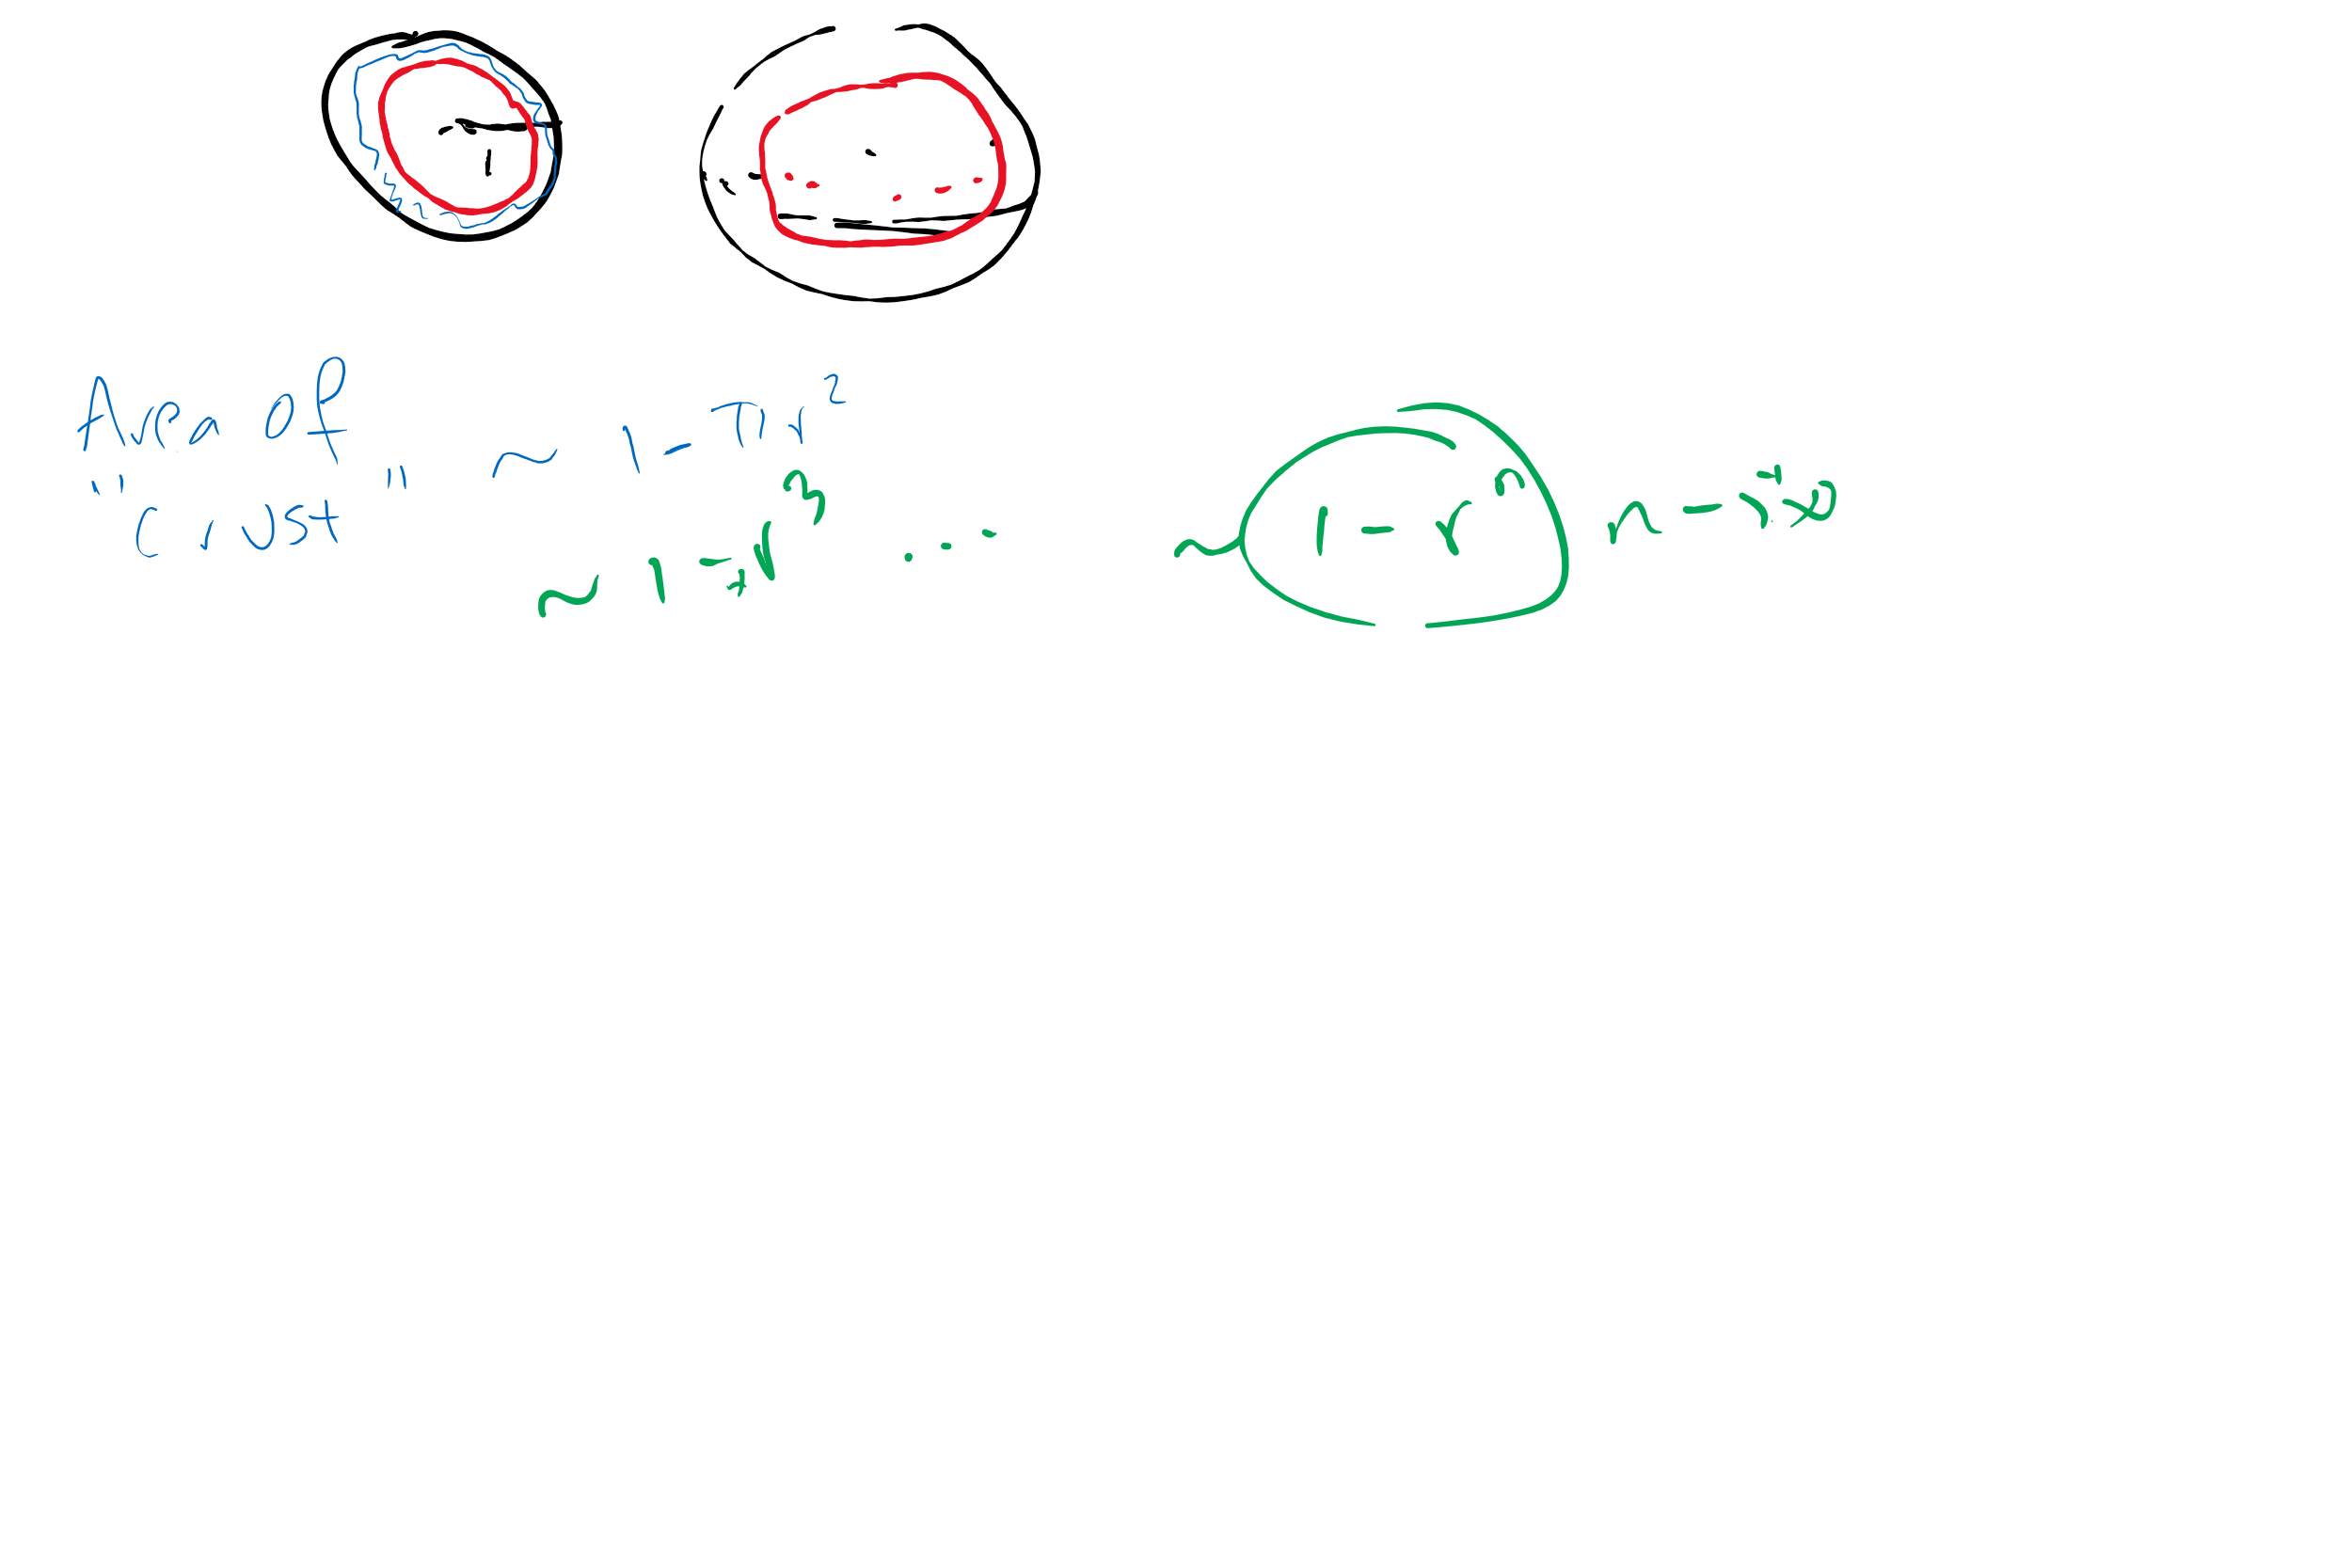 Area of
"Crust" ~ 1 - πr²
~ 1 - r³ ...
~ 1 - rⁿ n → ∞